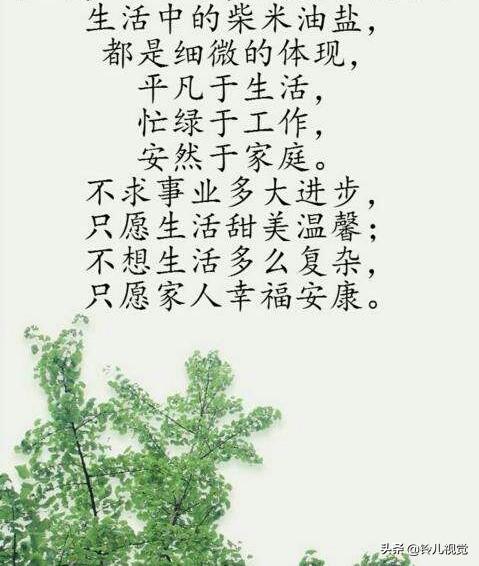 生活中的柴米油盐，
都是细微的体现，
平凡于生活，
忙绿于工作，
安然于家庭。
不求事业多大进步，
只愿生活甜美温馨；
不想生活多么复杂，
只愿家人幸福安康。
头条 @铃儿视觉